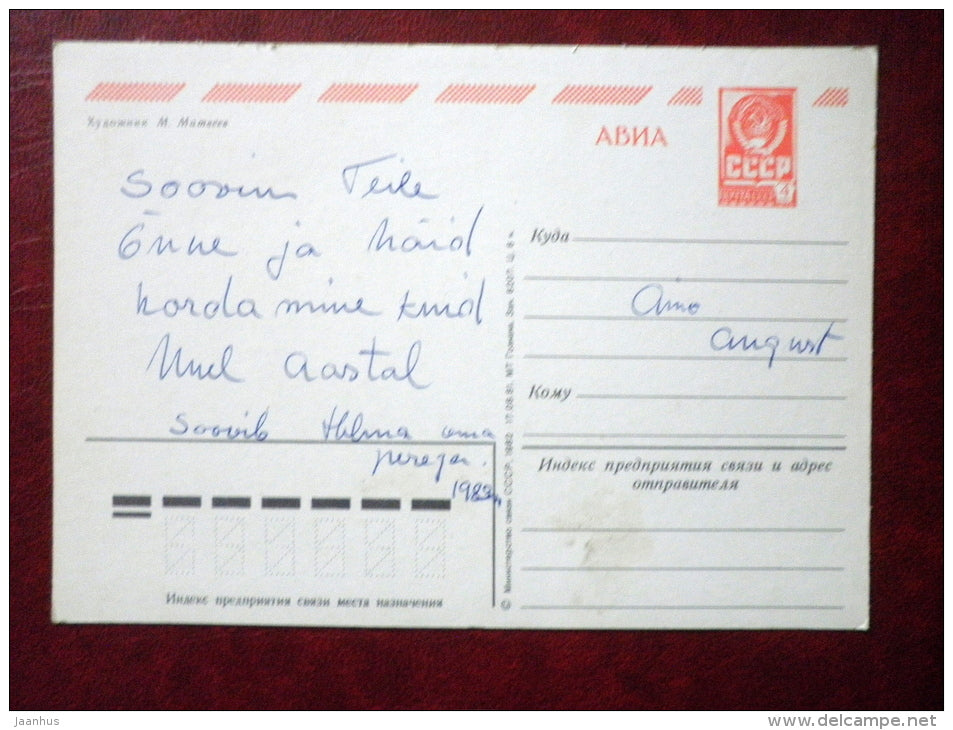 Художник М. Матвеев
АВИА
СССР
4
Soovin Teile
Õnne ja häid
kordaminekuid
Uuel Aastal
Soovib Helma oma
perega.
1983
Куда
Aino
August
Кому
Индекс предприятия связи и адрес
отправителя
Индекс предприятия связи места назначения
© Министерство связи СССР, 1982
jaanhus
www.delcampe.net